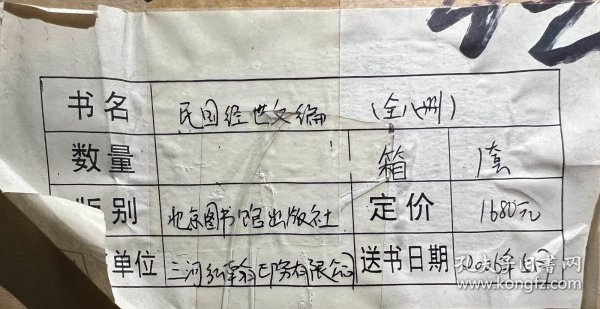 书名 民国经世文编 （全八册）
数量 箱 1套
版别 北京图书馆出版社 定价 1680元
单位 三河弘翰印务有限公司 送书日期 2006年
孔夫子旧书网
www.kongfz.com